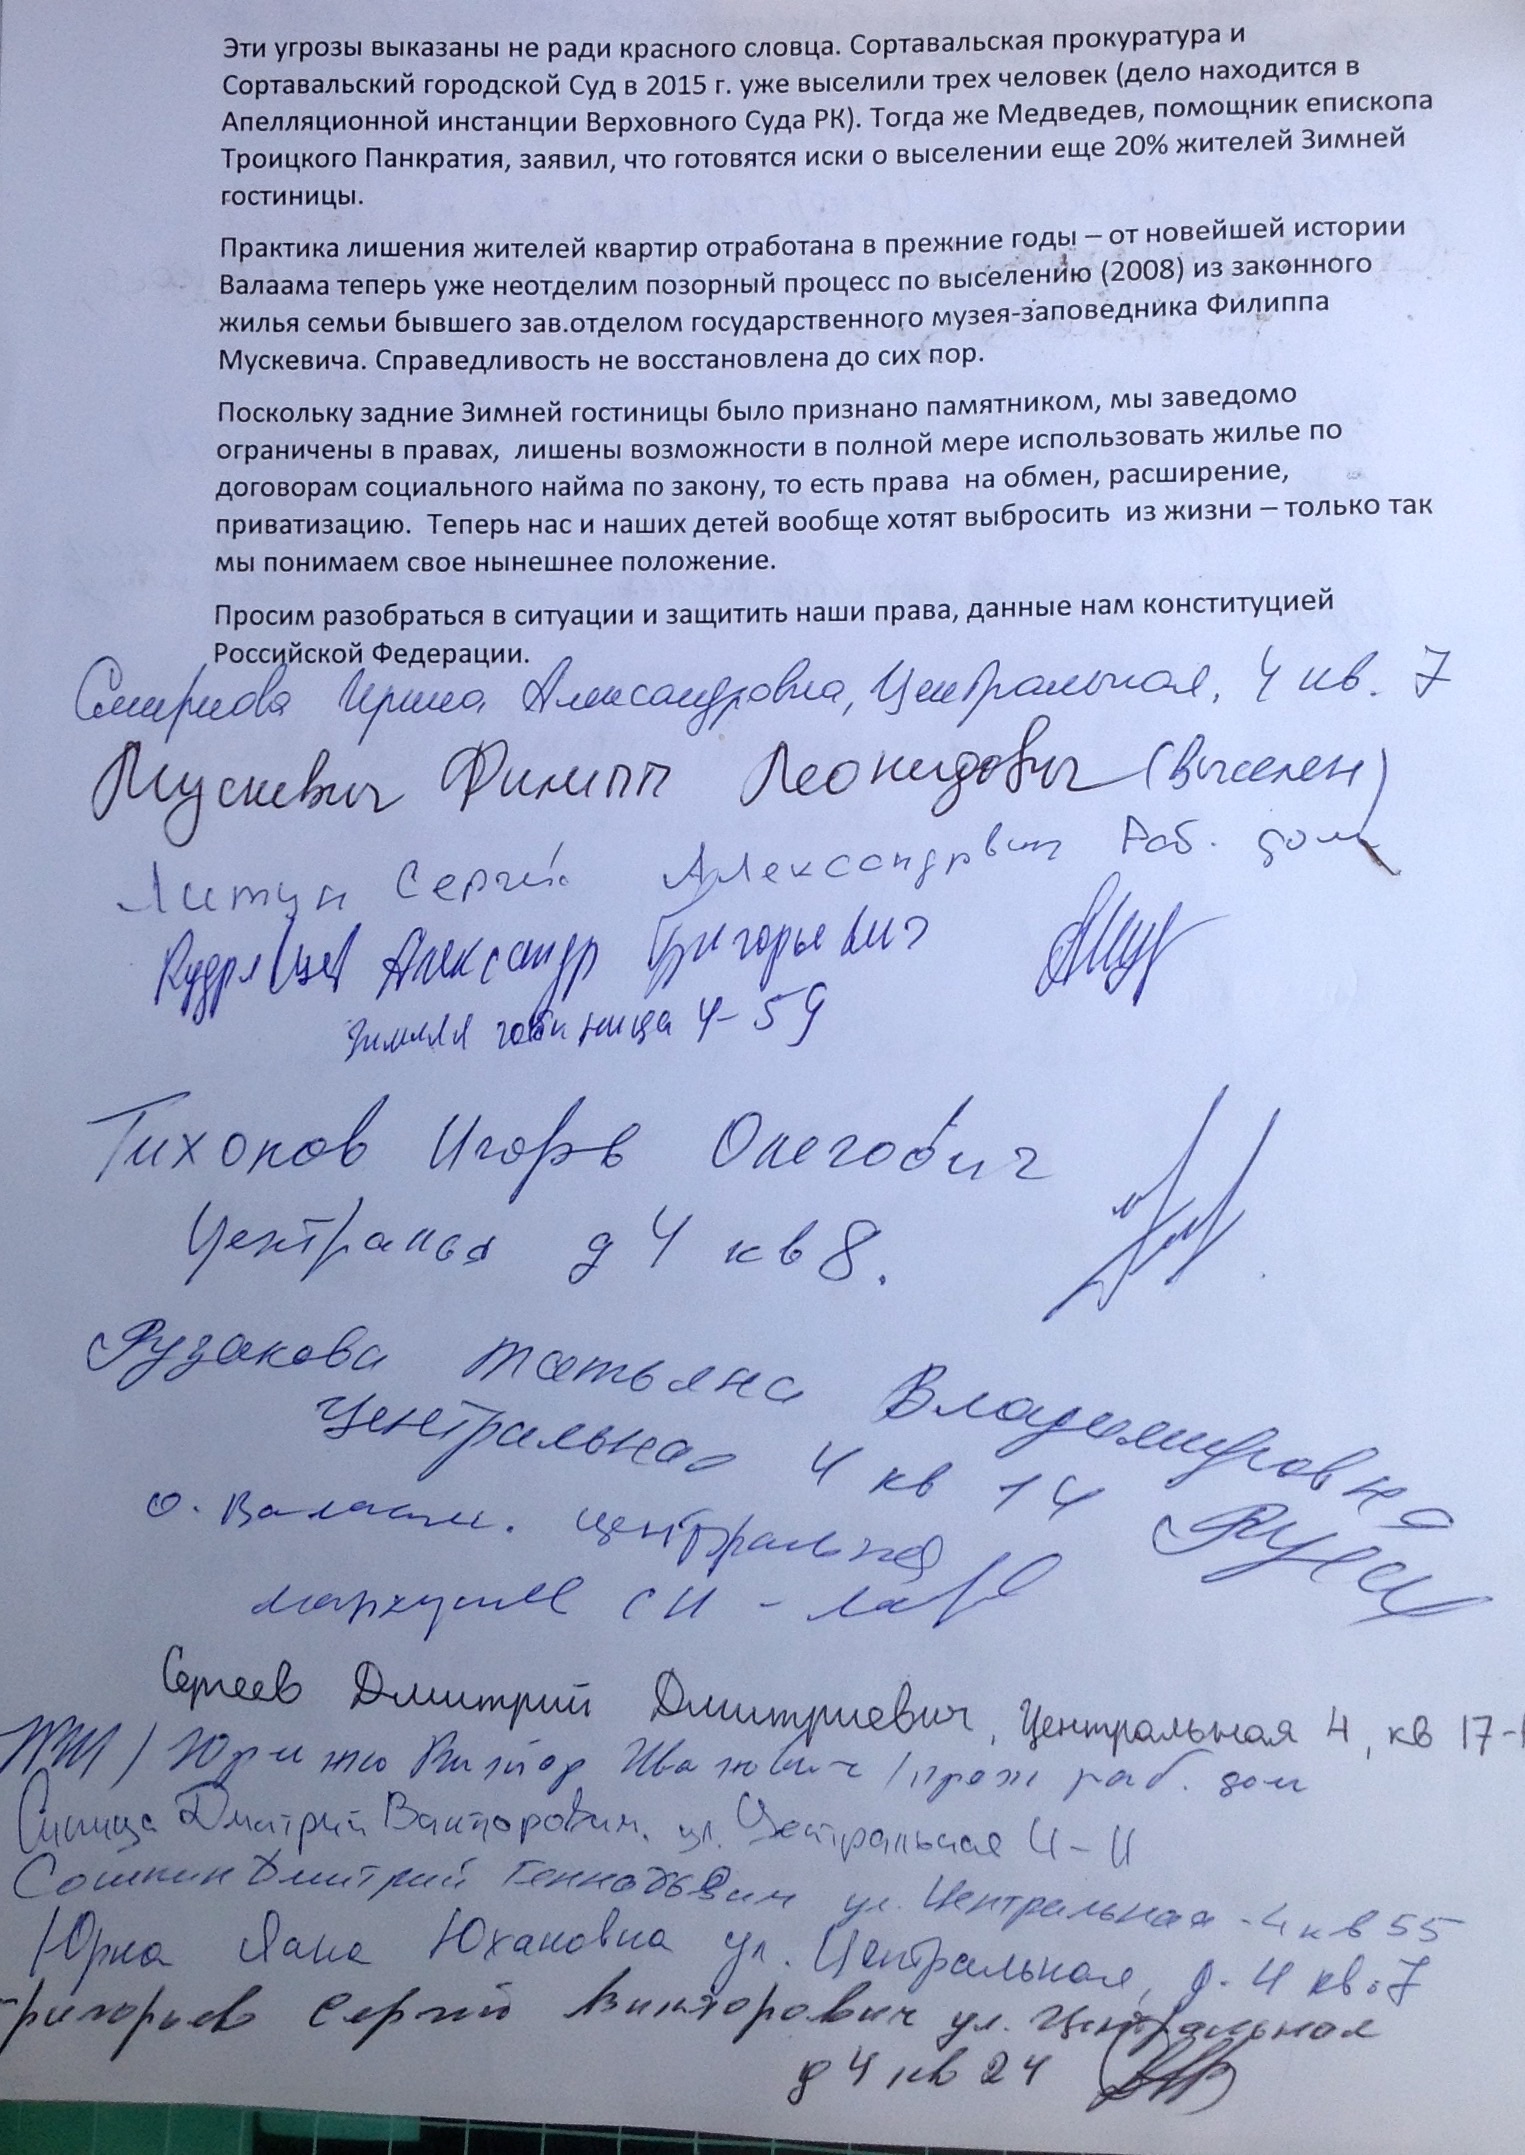 Эти угрозы выказаны не ради красного словца. Сортавальская прокуратура и
Сортавальский городской Суд в 2015 г. уже выселили трех человек (дело находится в
Апелляционной инстанции Верховного Суда РК). Тогда же Медведев, помощник епископа
Троицкого Панкратия, заявил, что готовятся иски о выселении еще 20% жителей Зимней
гостиницы.
Практика лишения жителей квартир отработана в прежние годы – от новейшей истории
Валаама теперь уже неотделим позорный процесс по выселению (2008) из законного
жилья семьи бывшего зав.отделом государственного музея-заповедника Филиппа
Мускевича. Справедливость не восстановлена до сих пор.
Поскольку задние Зимней гостиницы было признано памятником, мы заведомо
ограничены в правах, лишены возможности в полной мере использовать жилье по
договорам социального найма по закону, то есть права на обмен, расширение,
приватизацию. Теперь нас и наших детей вообще хотят выбросить из жизни – только так
мы понимаем свое нынешнее положение.
Просим разобраться в ситуации и защитить наши права, данные нам конституцией
Российской Федерации.
Смирнова Ирина Александровна, Центральная, 4 кв. 7
Мускевич Филипп Леонидович (выселен)
Литун Сергей Александрвич Раб. дом
Кудрявцев Александр Григорьевич
Зимняя гостиница 4-59
Тихонов Игорь Олегович
Центральная д 4 кв 8.
Рузакова Татьяна Владимировна
Центральная 4 кв 14
о. Валаам. Центральная
Сергеев Дмитрий Дмитриевич, Центральная 4, кв 17-
Виктор Иванович / прож раб. дом
Синица Дмитрий Викторович. ул. Центральная 4-11
Сошкин Дмитрий Геннадьевич ул. Центральная - 4 кв 55
Юрна Яана Юхановна ул. Центральная, д. 4 кв. 7
Григорьев Сергей Викторович ул. Центральная
д 4 кв 24